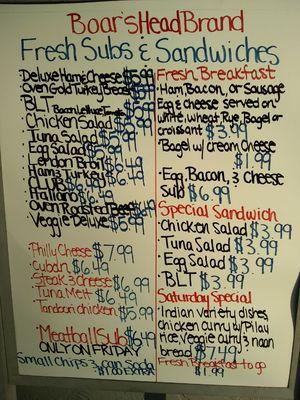 Boar's Head Brand
Fresh Subs & Sandwiches
Deluxe Ham & Cheese $5.99
Oven Gold Turkey Breast
BLT Bacon Lettuce Tomato
Chicken Salad
Tuna Salad $5.99
Egg Salad
London Broil $6.49
Ham & Turkey $6.49
CLUB $6.49
Italiano $6.49
Oven Roasted Beef $6.49
Veggie Deluxe $5.99
Philly Cheese $7.99
Cuban $6.49
Steak & Cheese $6.99
Tuna Melt $6.49
Tandoori chicken $5.99
Meatball Sub $6.49
ONLY ON FRIDAY
Small Chips & can Soda
Fresh Breakfast
Ham, Bacon, or Sausage
Egg & cheese served on
white, wheat, Rye, Bagel or
croissant $3.99
Bagel w/ cream Cheese
$1.99
Egg, Bacon, & Cheese
Sub $6.99
Special Sandwich
Chicken Salad $3.99
Tuna Salad $3.99
Egg Salad $3.99
BLT $3.99
Saturday Special
Indian variety dishes,
Chicken curry w/ Pilav
rice, Veggie curry & naan
bread $7.49
Fresh Breakfast to go
$1.99